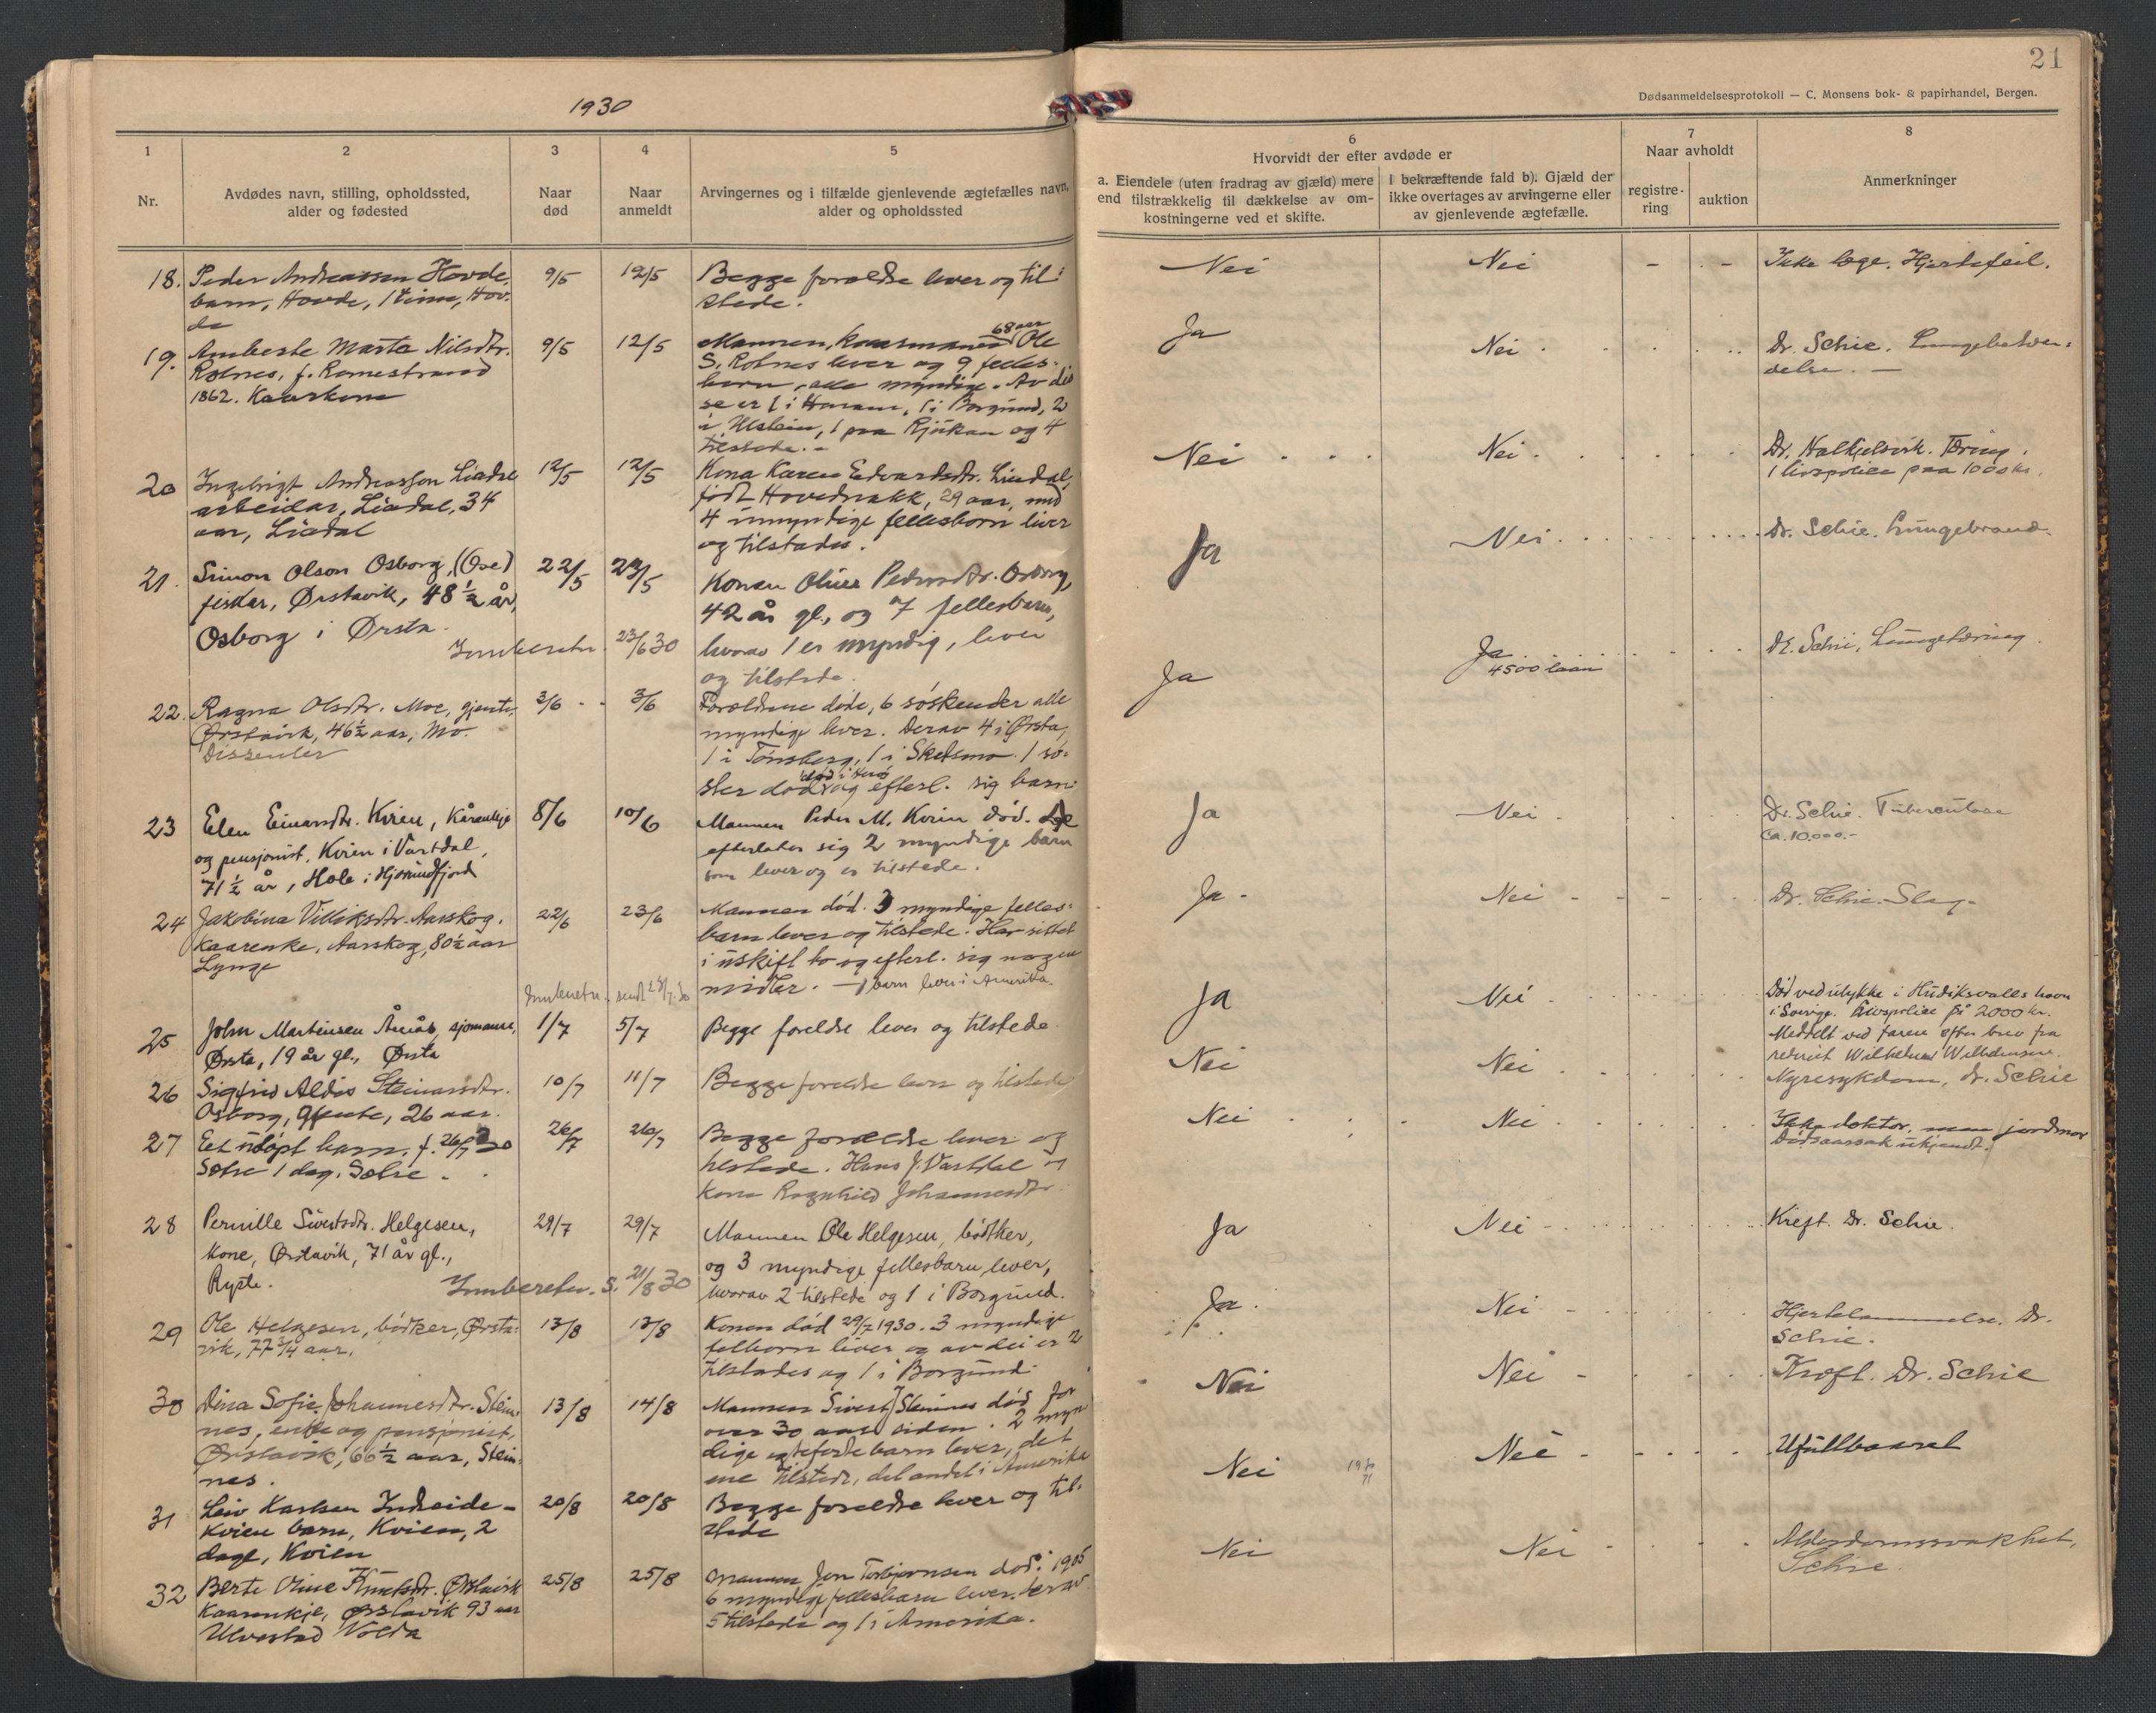 21
Dødsanmeldelsesprotokoll — C. Monsens bok- & papirhandel, Bergen.
1930
1
2
3
4
5
6
7
8
Nr.
Avdødes navn, stilling, opholdssted,
alder og fødested
Naar
død
Naar
anmeldt
Arvingernes og i tilfælde gjenlevende ægtefælles navn,
alder og opholdssted
Hvorvidt der efter avdøde er
a. Eiendele (uten fradrag av gjæld) mere
end tilstrækkelig til dækkelse av om-
kostningerne ved et skifte.
I bekræftende fald b). Gjæld der
ikke overtages av arvingerne eller
av gjenlevende ægtefælle.
Naar avholdt
registre-
ring
auktion
Anmerkninger
18. Peder Andreassen Hovde,
barn, Hovde, 1 time, Hov-
de
9/5
12/5
Begge foreldre lever og til
stede.
Nei
Nei
Ikke læge. Hjertefeil.
19. Marta Nilsdtr.
Rotnes, f. Romestrand
1862. Kaarkone
9/5
12/5
68 aar
Mannen, kaarmann Ole
S. Rotnes lever og 9 felles-
born, alle myndige. Av dis
se er 1 i Haram, 1 i Borgund, 2
i Ulstein, 1 paa Rjukan og 4
tilstede. -
Ja
Nei
Dr. Schie. Lungebeten-
delse. —
20 Ingebrigt Andreasson Liadal
arbeidar, Liadal, 34
aar, Liadal
12/5
12/5
Kona Karen Edvardsdtr. Liadal,
født Hovednakk, 29 aar, med
4 umyndige fellesborn liver
og tilstades.
Nei
Nei
Dr. Halkjelsvik. Tæring.
1 livspolice paa 1000 kr.
21. Simon Olson Osborg, (Ose)
fiskar, Ørstavik, 48 ½ år,
Osborg i Ørsta.
22/5
23/5
Innberetn. 23/6 30
Konen Oline Pedersdtr. Osborg,
42 år gl., og 7 fellesbarn,
hvorav 1 er myndig, lever
og tilstede.
Ja
Nei
Dr. Schie. Lungebrand.
22. Ragna Olsdtr. Moe, gjente,
Ørstavik, 46½ aar, Mo.
Dissenter
3/6
3/6
Foreldrene døde, 6 søskender alle
myndige lever. Derav 4 i Ørsta,
1 i Tønsberg, 1 i Skedsmo. 1 sø-
ster død og efterl. sig barn.
Ja
Ja
4500 laan
Dr. Schie, Lungetæring.
23 Elen Einarsdtr. Kvien, Kårenkje
og pensjonist, Kvien i Vartdal,
71 ½ år, Hole i Hjørundfjord
8/6
10/6
Mannen Peder M. Kvien død.
efterlater sig 2 myndige barn
som lever og er tilstede.
Ja
Nei
Dr. Schie. Tuberculose
Ca. 10.000.-
24 Jakobina Aarskog.
Kaarenke, Aarskog, 80½ aar
Lynge
22/6
23/6
Mannen død. 3 myndige felles-
barn lever og tilstede. Har sittet
i uskift bo og efterl. sig nogen
midler. — 1 barn lever i Amerika.
Ja
Nei
Dr. Schie. Slag.
Innberetn. sendt
25 John Martinsen Åmås, sjømann,
Ørsta, 19 år gl., Ørsta
1/7
5/7
Begge foreldre lever og tilstede.
Ja
Nei
Død ved ulykke i Hudiksvalls havn
i Sverige. Livspolice på 2000 kr.
Meddelt ved faren efter brev fra
rederiet Wilhelm Wilhelmsen.
26 Sigfrid Aldis Steinarsdtr.
Osborg, gjente, 26 aar.
10/7
11/7
Begge foreldre lever og tilstede
Nei
Nei
Nyresykdom, dr. Schie
27 Et udøpt barn. f. 26/7 30
Sætre 1 dag. Sætre.
26/7
26/7
Begge foreldre lever og
tilstede. Hans J. Vartdal og
kona Ragnhild Johannesdtr.
Nei
Nei
Ikke doktor, men jordmor
Dødsaarsak ukjendt.
28 Pernille Sivertsdtr. Helgesen,
kone, Ørstavik, 71 år gl.,
Ryste.
29/7
29/7
Innberetn. s. 21/8 30
Mannen Ole Helgesen, bødtker,
og 3 myndige fellesbarn lever,
hvorav 2 tilstede og 1 i Borgund.
Ja
Nei
Kreft. Dr. Schie.
29 Ole Helgesen, bødker, Ørsta-
vik, 77 3/4 aar.
13/8
13/8
Konen død 29/7 1930. 3 myndige
felborn liver og av dei er 2
tilstades og 1 i Borgund.
Ja.
Nei
Hjertelammelse. Dr.
Schie.
30 Dina Sofie Johannesdtr. Stein-
nes, enke og pensjonist,
Ørstavik, 66½ aar, Stein-
nes.
13/8
14/8
Mannen Sivert J Steinnes død for
over 30 aar siden. 2 myn
dige egtefødte barn lever, det
ene tilstede, det andet i Amerika
Nei
Nei
Kreft. Dr. Schie
31 Leiv Karlsen Indreide-
Kvien barn, Kvien, 2
dage, Kvien
20/8
20/8
Begge foreldre lever og til-
stede
Nei
Nei
Ufullbaaret
32 Berte Oline Knutsdr. Ørstavik
Kaarenkje, Ørstavik 93 aar
Ulvestad Volda
25/8
25/8
Mannen Jon Torbjørnsen død i 1905
6 myndige fellesbarn lever, derav
5 tilstede og 1 i Amerika.
Nei
Nei
Alderdomssvakhet,
Schie.